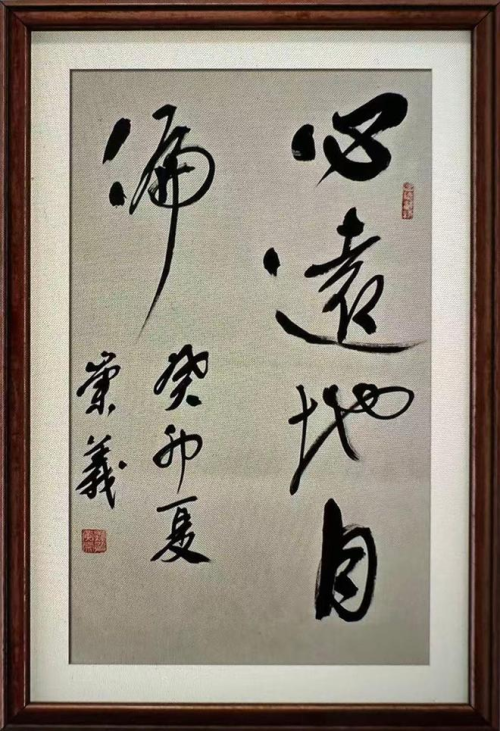 心遠地自
偏
癸卯夏
業義